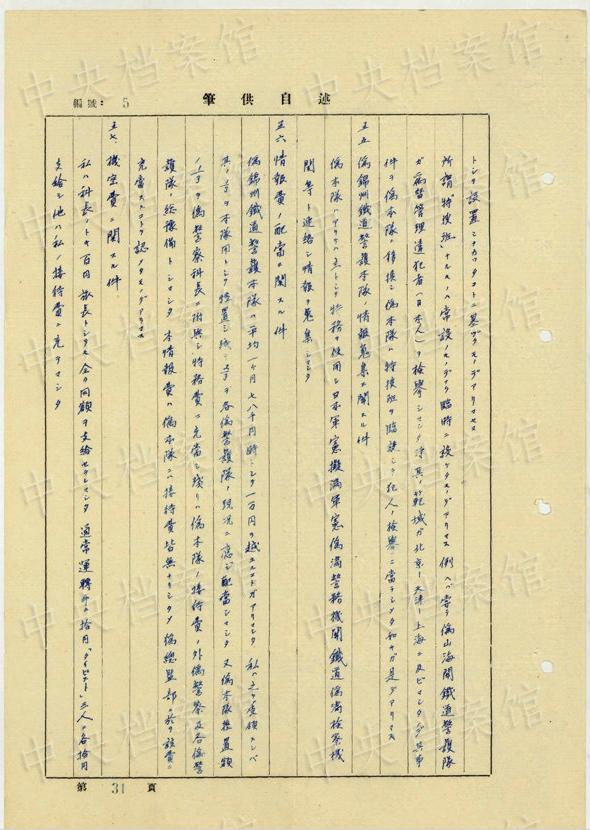 編號： 5
筆供自述
トシテ設置シナカッタコトニ基ヅクモノデアリマス
所謂「特捜班」ナルモノハ常設ノモノデナク臨時ニ設ケタモノデアリマス 例ヘバ 偽山海関鉄道警護隊
ガ為替管理違犯者(日本人)ヲ検挙シマシタ 其ノ範域ガ北京ー天津ー上海ニ及ビマシタ 其事
件ヲ偽本隊ニ移シ偽本隊ハ特捜班ヲ臨設シテ犯人ノ検挙ニ当ラシメタ 是デアリマス
五五、偽錦州鐵道警護本隊ノ情報蒐集ニ関スル件
偽本隊ニアリテハ主トシテ特務ヲ使用シ日本軍憲擬満軍憲偽満警務機関鐵道偽満検察機
関等ト連絡シ情報ヲ蒐集シマシタ
五六、情報費ノ配当ニ関スル件
偽錦州鐵道警護本隊ハ平均一ヶ月七八千円時ニシテ一万円ヲ越エルコトガアリマシタ 私ハ之ヲ受領スレバ
其ノヲ本隊用トシテ ヲ各偽警護隊ノ現況ニ應ジ配当シマシタ 又偽本隊 置額
ノヲ偽警察科長ニ附與シ特務費ニ充当シ残リハ偽本隊ノ接待費ノ外偽警察及各偽警
護隊ノ 備トシマシタ 本情報費ハ偽本隊ニハ接待費皆無ナリシタメ 偽總監部ニ於テ該費ニ
充当スルコトヲ認メタタメデアリマス
五七、機密費ニ関スル件
私ハ科長ノトキ百円 長トシテモ全ク同額ヲ支給セラレマシタ 通常運轉手ニ拾円「タイピスト」三人ニ各拾円
支給シ他ハ私ノ接待費ニ充テマシタ
第 31 頁
中央档案馆